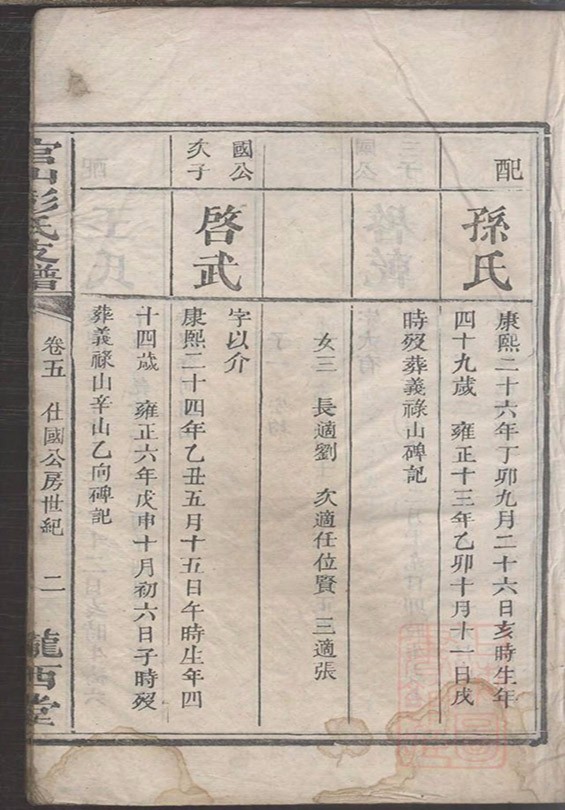 配
孫氏
康熙二十六年丁卯九月二十六日亥時生年
四十九歲　雍正十三年乙卯十月十一日戌
時歿葬義祿山碑記
女三　長適劉　次適任位賢　三適張
國公
次子
啓武
字以介
康熙二十四年乙丑五月十五日午時生年四
十四歲　雍正六年戊申十月初六日子時歿
葬義祿山辛山乙向碑記
宫山彭氏支譜
卷五　仕國公房世紀　二　隴西堂